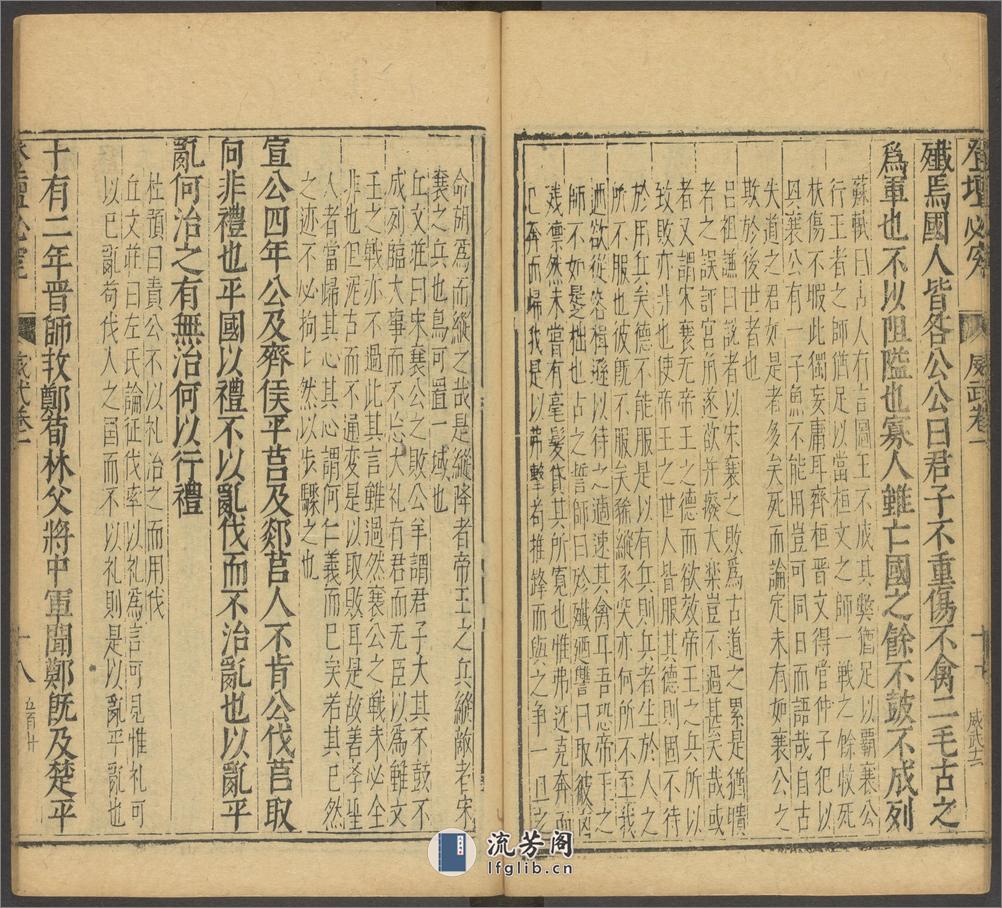 登壇必究 威武卷一 十七
殱焉國人皆咎公公曰君子不重傷不禽二毛古之
爲軍也不以阻隘也寡人雖亡國之餘不鼓不成列
蘇軾曰古人有言圖王不成其弊猶足以霸襄公
行王者之師猶足以當桓文之師一戰之餘救死
扶傷不暇此獨妄庸耳齊桓晋文得管仲子犯以
興襄公有一子魚不能用豈可同日而語哉自古
失道之君如是者多矣死而論定未有如襄公之
欺於後世者也
吕祖謙曰説者以宋襄之敗爲古道之累是猶瞶
者之誤評宫角遂欲并廢大樂豈不過甚矣哉或
者又謂宋襄无帝王之德而欲效帝王之兵所以
致敗亦非也使帝王之世人皆服其德則固不待
於用兵矣德不能服是以有兵則兵者生於人之
有所不服也彼旣不服矣豨縱豕突亦何所不至我
迺欲從容揖遜以待之適速其禽耳吾恐帝王之
師不如是之拙也古之誓師曰殄殱廼讐曰取彼凶
殘凛然未嘗有毫髮貸其所寛也惟弗迓克奔而
已奔而歸我是以弗擊苟推鋒而與之争一旦之
命胡爲而縱之哉是縱降者帝王之兵縱敵者宋
襄之兵也烏可置一域也
丘文莊曰宋襄公之敗公羊謂君子大其不鼓不
成列臨大事而不忘大礼有君而无臣以爲雖文
王之戰亦不過此其言雖過然襄公之戰未必全
非也但泥古而不通變是以取敗耳是故善學聖
人者當師其心其心謂何仁義而已矣若其已然
之迹不必拘比然以步驟之也
宣公四年公及齊侯平莒及郯莒人不肯公伐莒取
向非禮也平國以禮不以亂伐而不治亂也以亂平
亂何治之有無治何以行禮
杜預曰責公不以礼治之而用伐
丘文莊曰左氏論征伐率以礼爲言可見惟礼可
以已亂苟伐人之国而不以礼則是以亂平亂也
十有二年晋師救鄭荀林父將中軍聞鄭旣及楚平
登壇必究 威武卷一 十八 五百廿
流芳阁
lfglib.cn